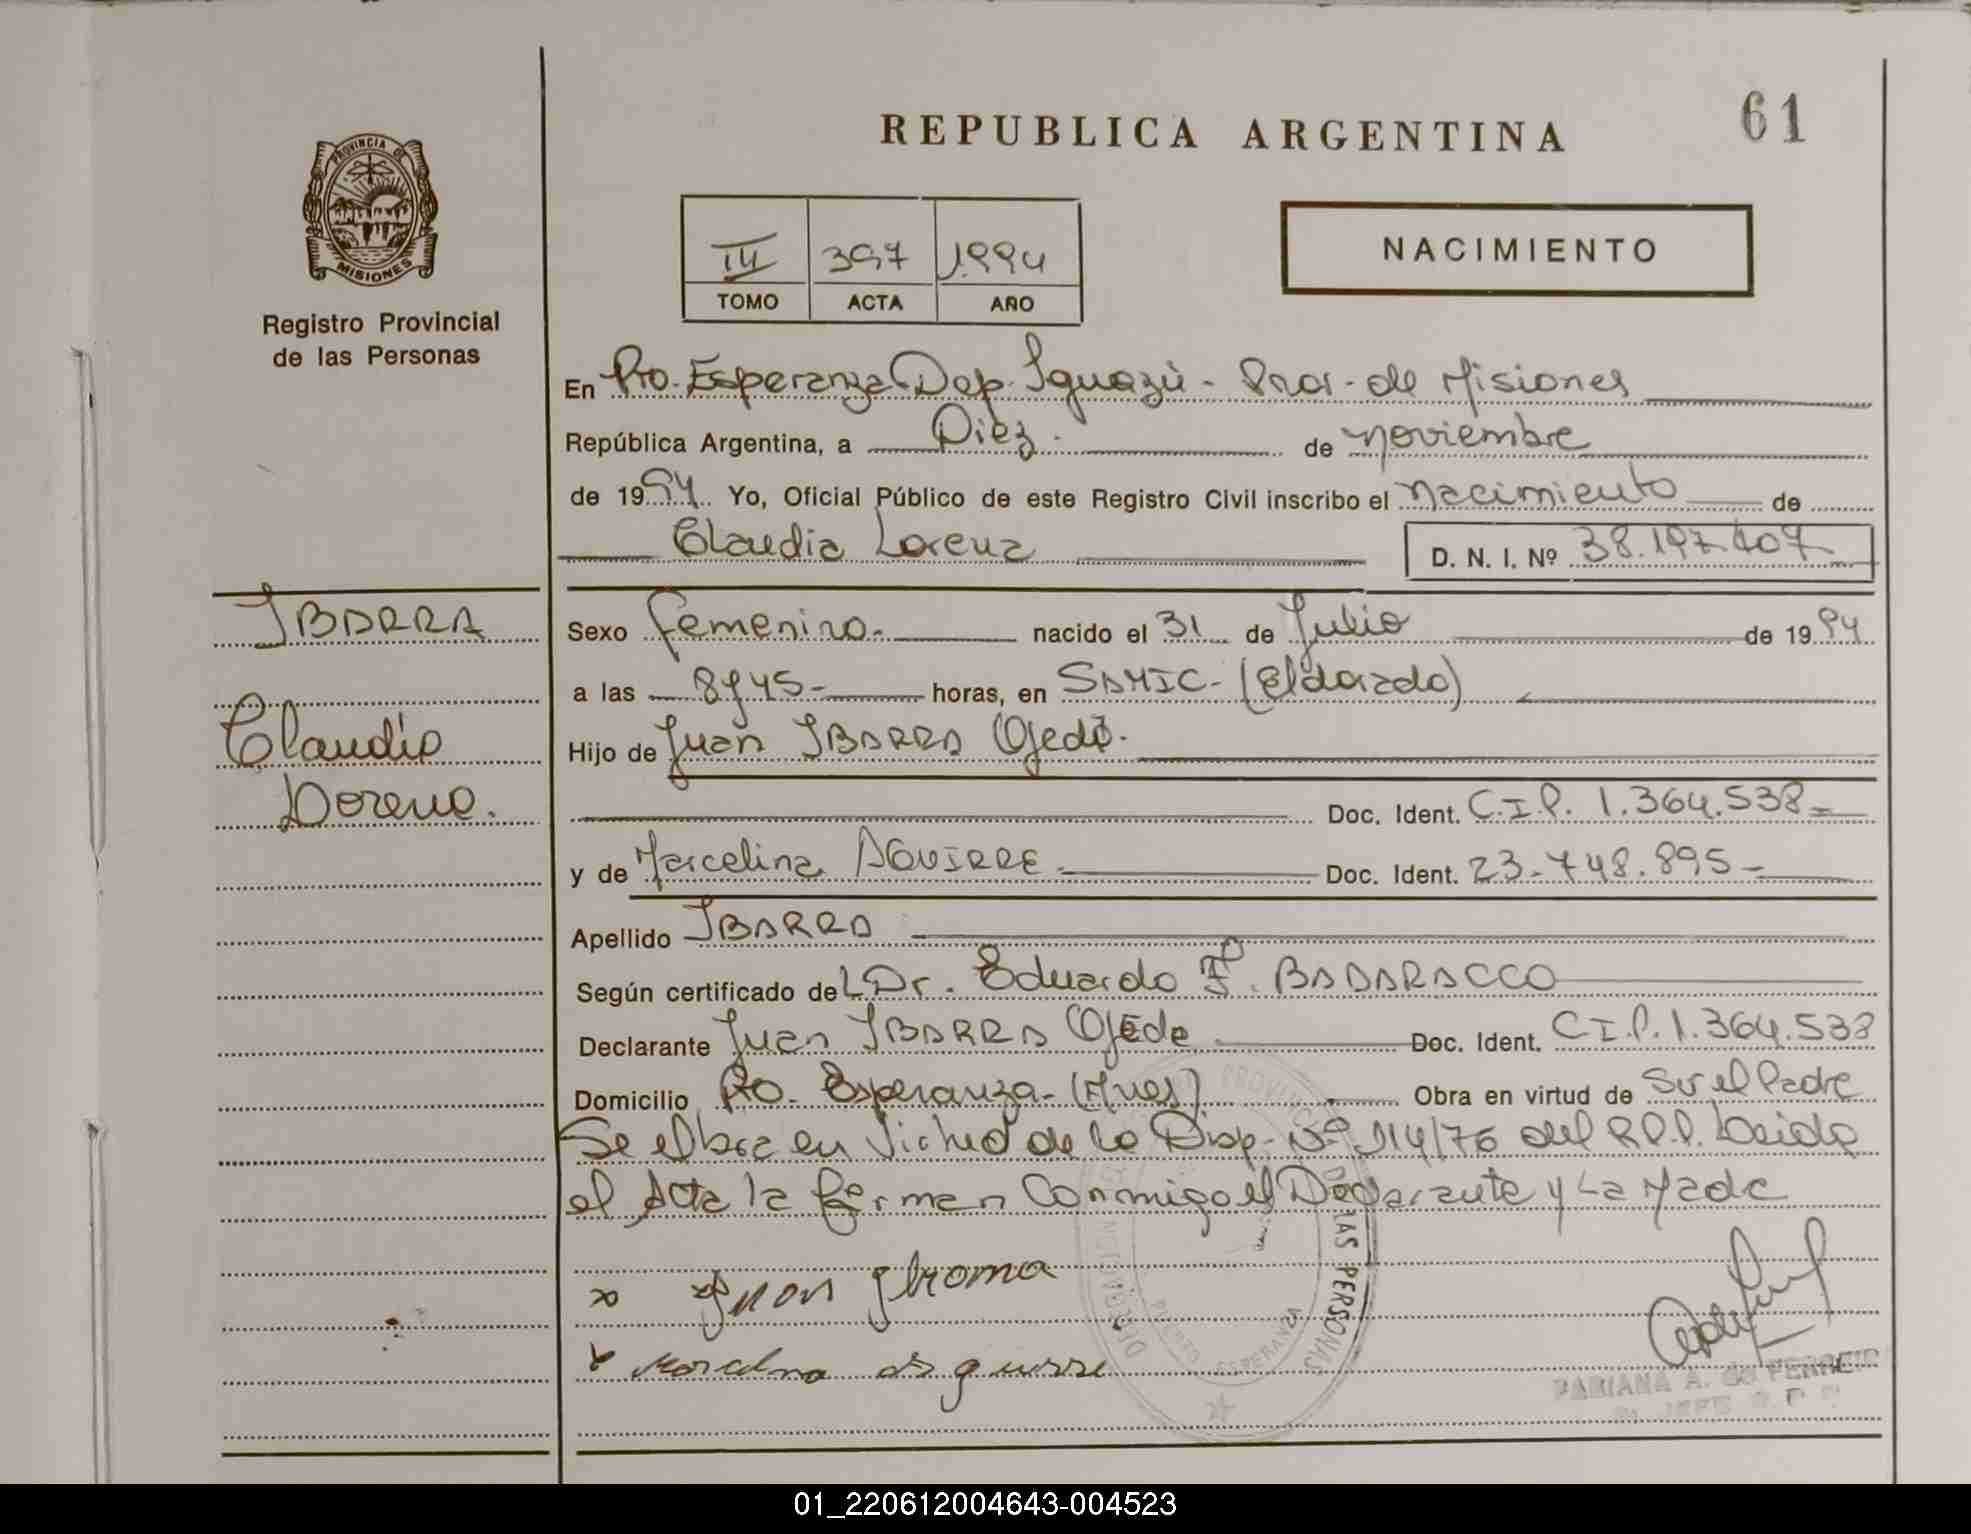 REPUBLICA ARGENTINA
61
PROVINCIA DE
MISIONES
Registro Provincial
de las Personas
III 397 1994
TOMO ACTA AÑO
NACIMIENTO
En Pto. Esperanza Dep. Iguazú - Prov. de Misiones
República Argentina, a Diez. de noviembre
de 1994 Yo, Oficial Público de este Registro Civil inscribo el nacimiento de
Claudia Lorena
D. N. I. Nº 38.197.407
IBARRA
Claudia
Lorena.
Sexo Femenino. nacido el 31 de Julio de 1994
a las 8y45- horas, en SAMIC- (Eldorado)
Hijo de Juan IBARRA Ojeda.
Doc. Ident. C.I.P. 1.364.538=
y de Marcelina AGUIRRE Doc. Ident. 23.748.895-
Apellido IBARRA
Según certificado del Dr. Eduardo F. BADARACCO
Declarante Juan IBARRA Ojeda Doc. Ident. C.I.P. 1.364.538
Domicilio Pto. Esperanza- (Mnes) Obra en virtud de Ser el Padre
Se elbra en Virtud de la Disp. Nº 114/76 del R.P.P. Leida
el Acta la firman Conmigo el Declarante y La Madre
x Juan
x
PROVINCIAL DE LAS PERSONAS
PUERTO ESPERANZA
FABIANA A. de FERREIR
JEFE
01_220612004643-004523